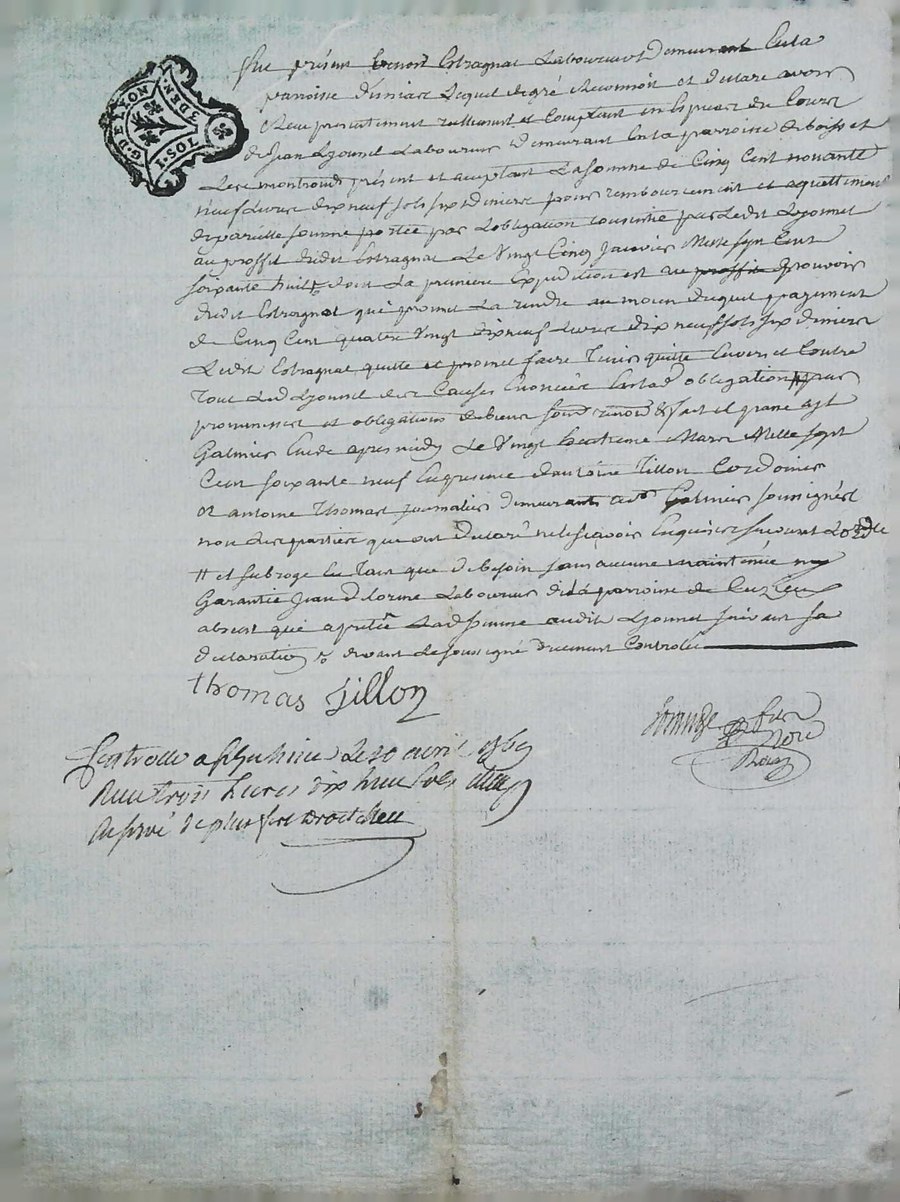 G. DE LYON
I. SOL
DEN.
Fut présent benoit Estragnat Laboureur Demeurant en la
parroisse Lequel de gré Reconnoit et declare avoir
Receu presentement reellement et Comptant en Especes de Cours
de Jean Lyonnet Laboureur Demeurant en la parroisse de boisset
Les montrond présent et aceptant La somme de Cinq Cent nonante
neuf Livres dix neuf sols six Deniers pour remboursement et aquittement
de pareille somme portée par Lobligation consentie par Ledit Lyonnet
au proffit dudit Estragnat Le Vingt Cinq Janvier Mille sept Cent
soixante huit dont La premiere Expedition est au pouvoir
dudit Estragnat qui promet La rendre au moien duquel payement
de Cinq Cent quatre Vingt dix neuf Livres dix neuf sols six deniers
Ledit Estragnat quitte et promet faire Tenir quitte Envers et Contre
Tous Led Lyonnet des Causes Enoncées En lad obligation # par
promesses et obligations de biens fait et passé a St
Galmier Etude apres midy Le Vingt huitieme Mars Mille sept
Cent soixante neuf En presence d'antoine Tillon Cordonier
et antoine Thomas journalier demeurants aud St Galmier soussignés
non Les parties qui ont declaré ne le sçavoir Enquises suivant Lord
# et subroge En Tant que de besoin sans aucune maintenüe ny
Garantie Jean Laboureur de la parroisse de Cuzieu
absent qui a preté Lad somme audit Lyonnet suivant sa
declaration devant Le soussigné duement Controllé
thomas Tillon
Controllé a St Galmier Le 10 avril 1769
Receu trois Livres dix huit sols
reservé de plus fort Droit